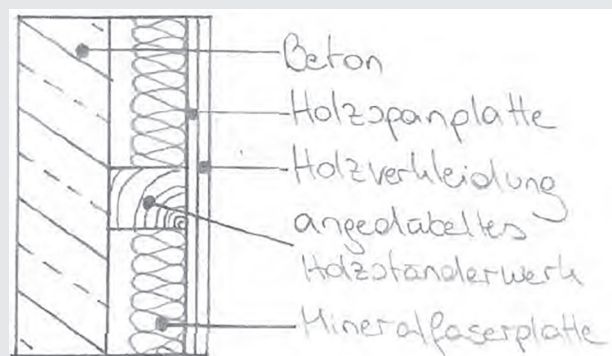 Beton
Holzspanplatte
Holzverkleidung
angedübeltes
Holzständerwerk
Mineralfaserplatte